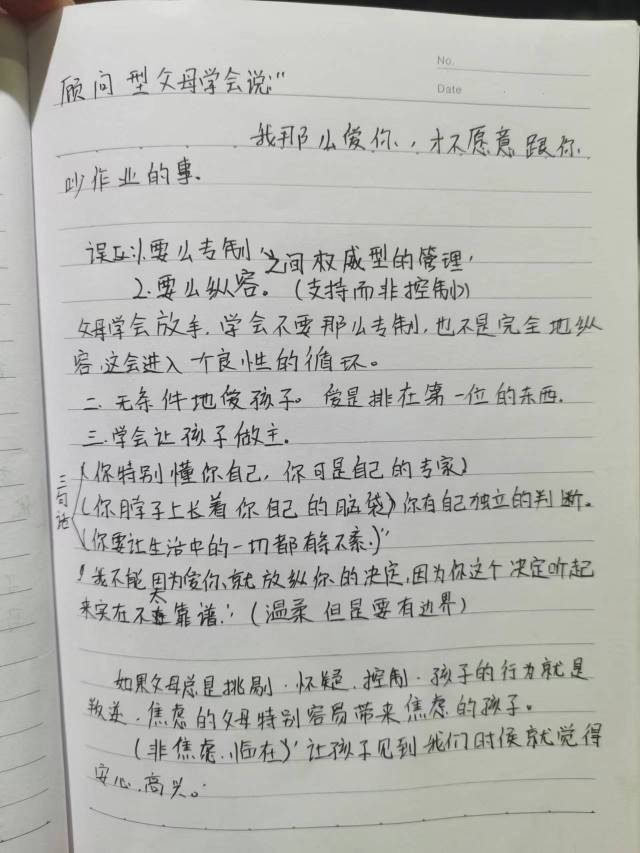 No.
Date
顾问型父母学会说:"
我那么爱你,才不愿意跟你
吵作业的事.
误区:1.要么专制,之间权威型的管理,
2.要么纵容。(支持而非控制)
父母学会放手,学会不要那么专制,也不是完全地纵
容,这会进入一个良性的循环。
二.无条件地爱孩子。爱是排在第一位的东西.
三.学会让孩子做主.
三句话
(你特别懂你自己,你可是自己的专家)
(你脖子上长着你自己的脑袋)你有自己独立的判断。
(你要让生活中的一切都有条不紊.)"
"我不能因为爱你,就放纵你的决定,因为你这个决定听起
来实在不太靠谱."(温柔但是要有边界)
如果父母总是挑剔.怀疑.控制.孩子的行为就是
叛逆.焦虑的父母特别容易带来焦虑的孩子。
(非焦虑.临在)"让孩子见到我们时候就觉得
安心.高兴。